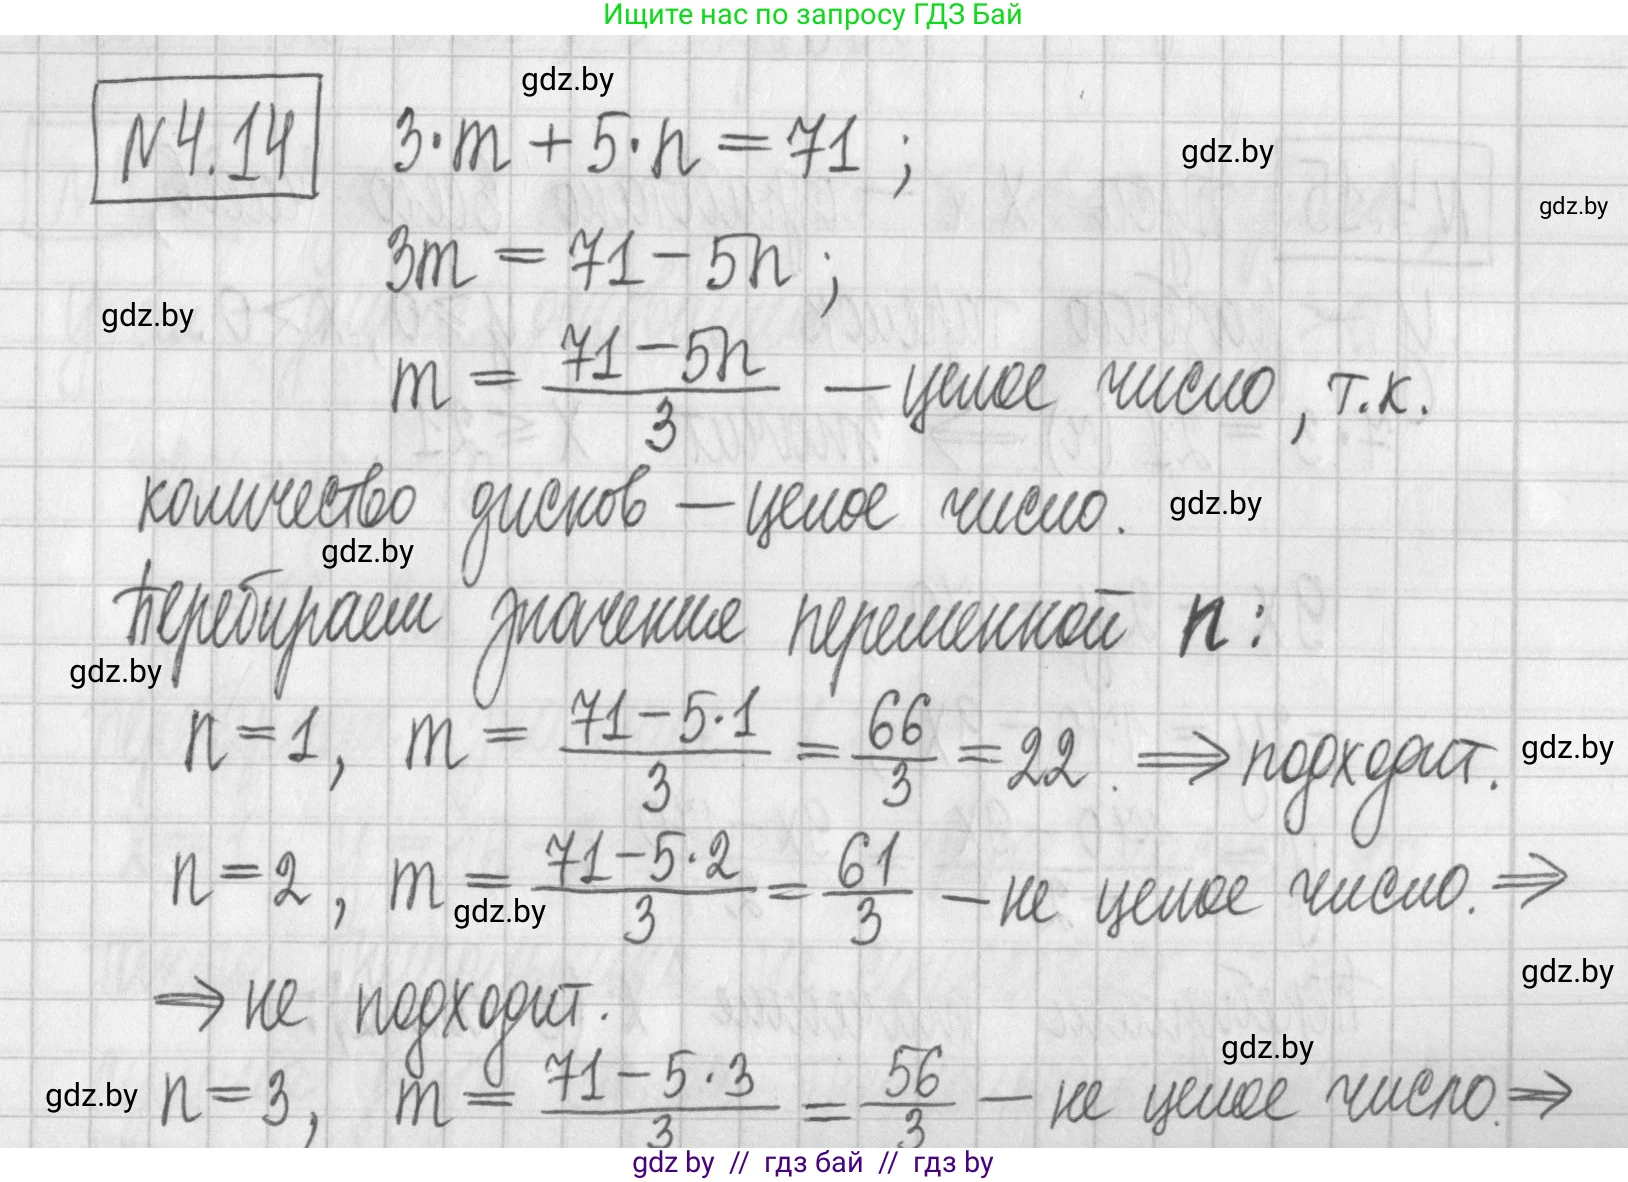 Ищите нас по запросу ГДЗ Бай
gdz.by
№4.14 3·m + 5·n = 71 ;
gdz.by
gdz.by
3m = 71 - 5n ;
gdz.by
m = \frac{71-5n}{3} - целое число, т.к.
количество дисков - целое число.
gdz.by
gdz.by
Перебираем значение переменной n:
gdz.by
n = 1, m = \frac{71-5·1}{3} = \frac{66}{3} = 22. ⇒ подходит.
gdz.by
n = 2, m = \frac{71-5·2}{3} = \frac{61}{3} - не целое число. ⇒
gdz.by
⇒ не подходит.
gdz.by
gdz.by
n = 3, m = \frac{71-5·3}{3} = \frac{56}{3} - не целое число. ⇒
gdz.by
gdz by // гдз бай // гдз by